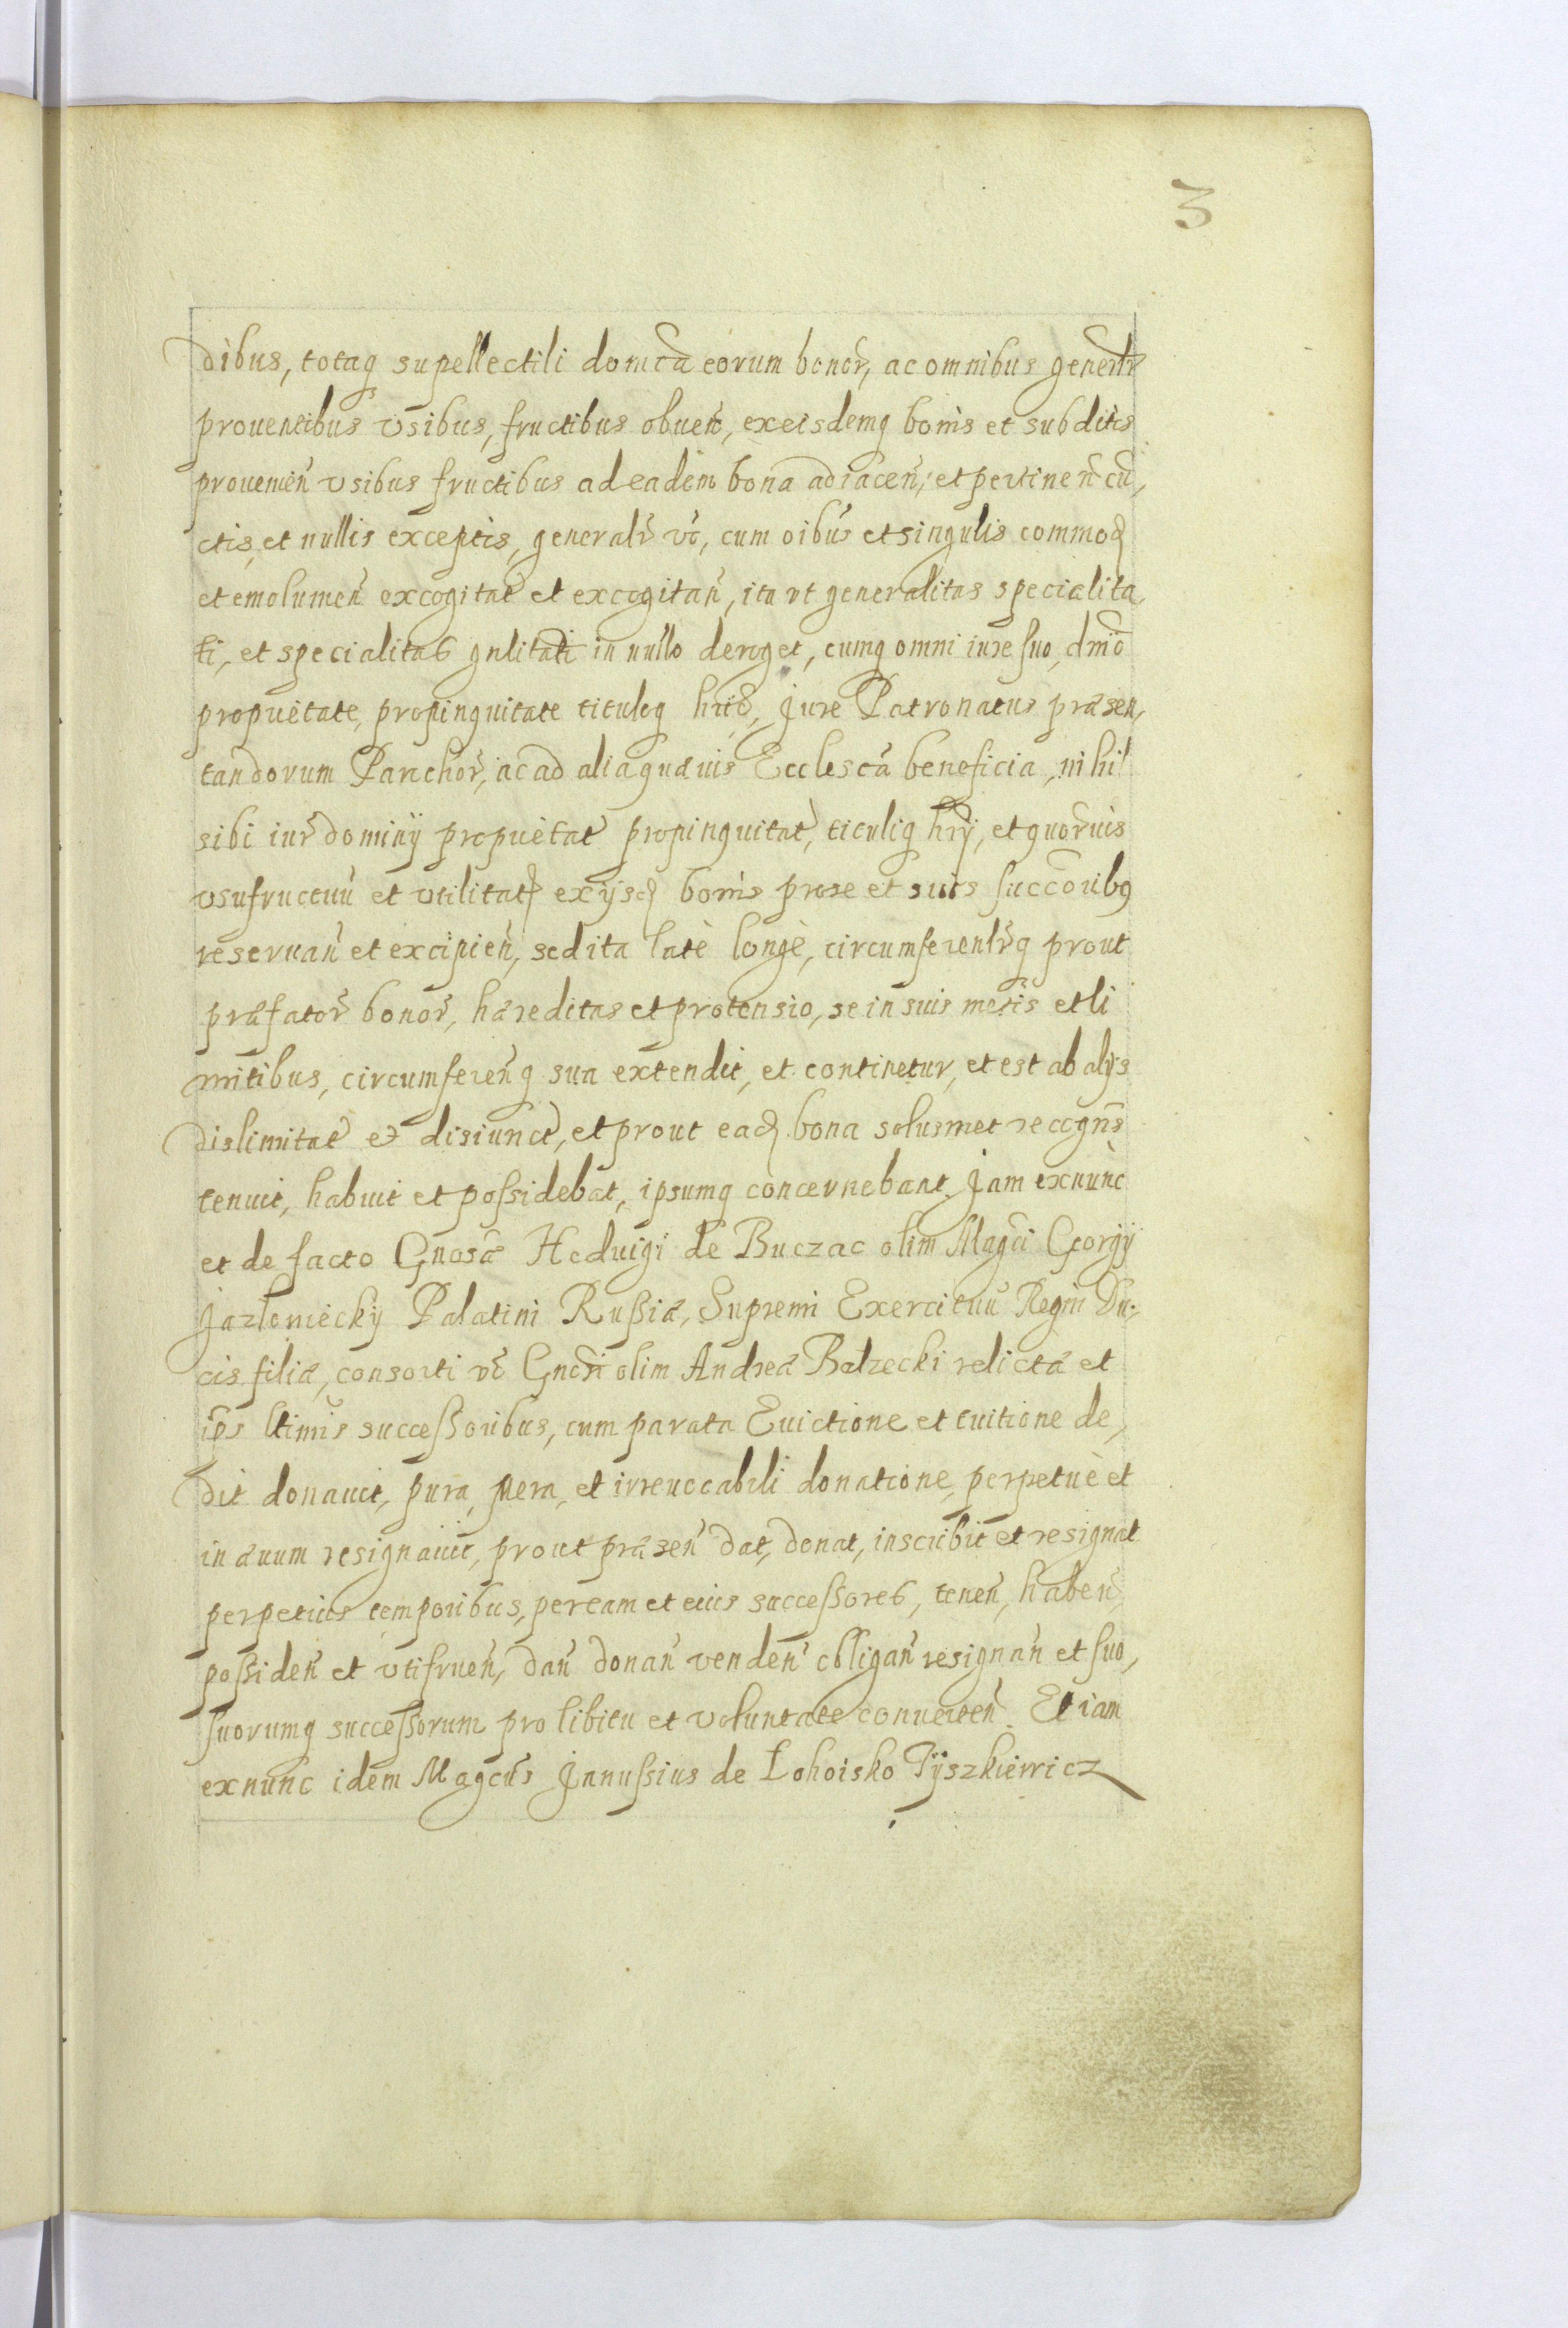 3
dibus, totaq supellectili domcã eorum bonor̃, ac omnibus generlr̃
prouenẽtibus vsibus, fructibus obueñ, ex eisdemq bonis et subditis
prouenień vsibus fructibus ad eadem bona adiaceñ, et pertineñ cũ,
ctis, et nullis exceptis, generalr̃ vč, cum oibũs et singulis commod̃
et emolumeñ excogitat̃ et excogitañ, ita vt generalitas specialita,
ti, et specialitas gnlitati in nullo deroget, cumq omni iure suo, dmio
proprietate, propinquitate tituloq hrio, Jure Patronatus præsen,
tandorum Parochor̃, ac ad alia quæuis Ecclescã beneficia, nihil
sibi iur̃ dominij proprietat̃ propinquitat̃, tituliq hrij, et quor̃uis
vsufructuũ et vtilitat̃ ex ijsd̃ bonis pro se et suis succoribq
reseruañ et excipieñ, sed ita latè longè, circumferentr̃q prout
præfator̃ bonor̃, hæreditas et protensio, se in suis metis et li
mitibus, circumfereñq sua extendit, et continetur, et est ab alijs
dislimitat̃ et disiunct̃, et prout ead̃ bona solusmet recogns̃
tenuit, habuit et possidebat, ipsumq concernebant. Jam exnunc
et de facto Gnosæ Heduigi de Buczac olim Magci Georgij
Jazlowiecky Palatini Russiæ, Supremi Exercituũ Regni Du,
cis filiæ, consorti vč Gnosi olim Andreæ Balzecki relictæ et
ips̃ ltimis successoribus, cum parata Euictione et tuitione de,
dit donauit, pura, mera, et irreuocabili donatione, perpetuè et
in æuum resignauit, prout præseñ dat, donat, inscribit et resignat
perpetuis temporibus, per eam et eius successores, teneñ, habeñ,
possideñ et vtifrueñ, dañ donañ vendeñ obligañ resignañ et suo,
suorumq successorum pro libitu et voluntate conuerteñ. Et iam
exnunc idem Magcus Janussius de Lohoisko Tyszkiewicz